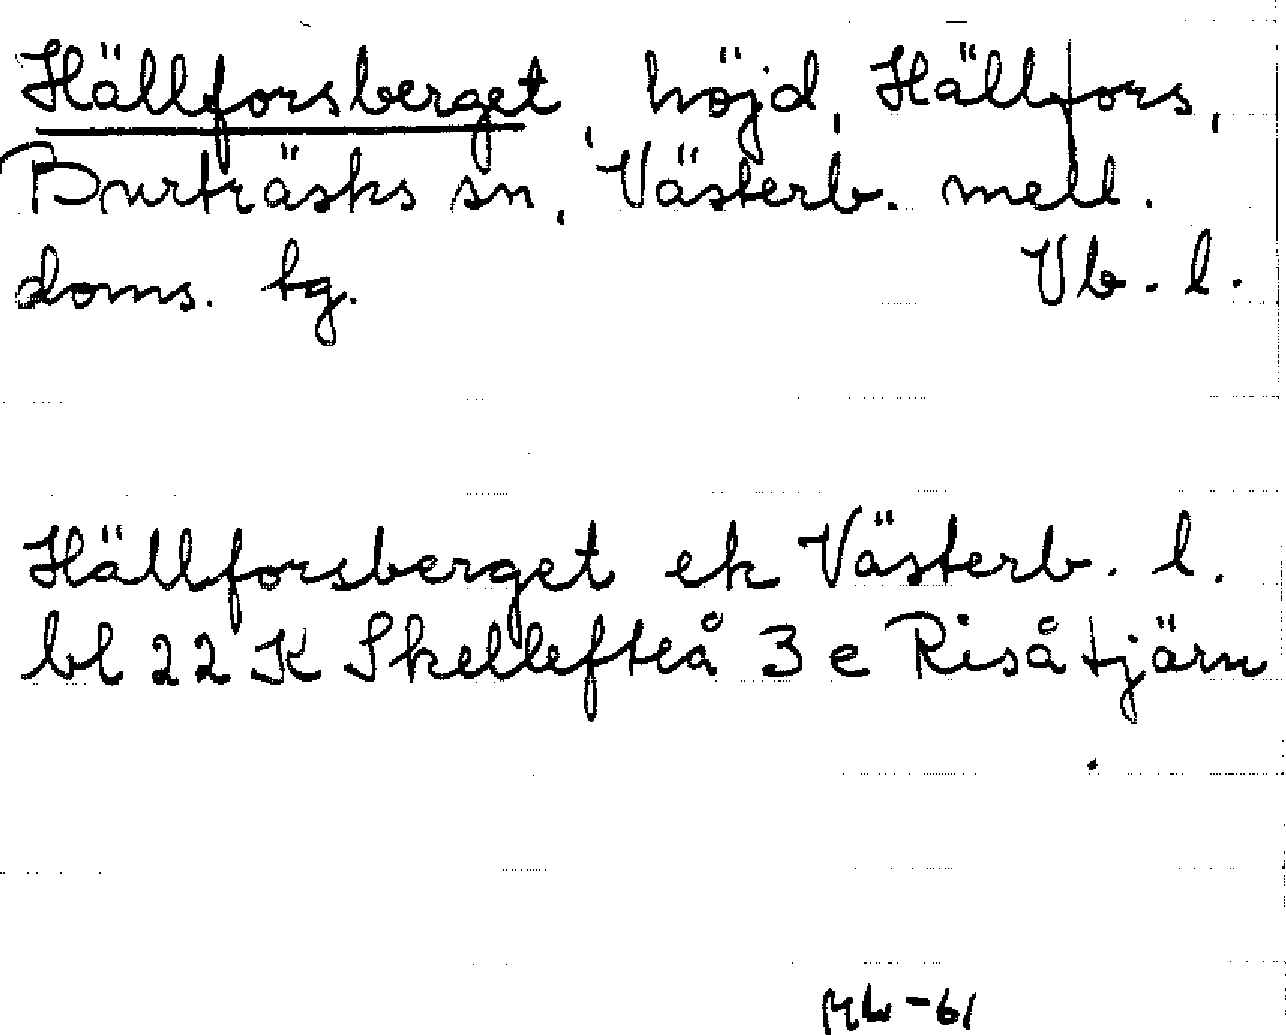 Hällforsberget, höjd, Hällfors,
Burträsks sn, Västerb. mell.
doms. tg. Vb. l.
Hällforsberget ek Västerb. l.
bl 22 K Skellefteå 3 e Risåtjärn
-61